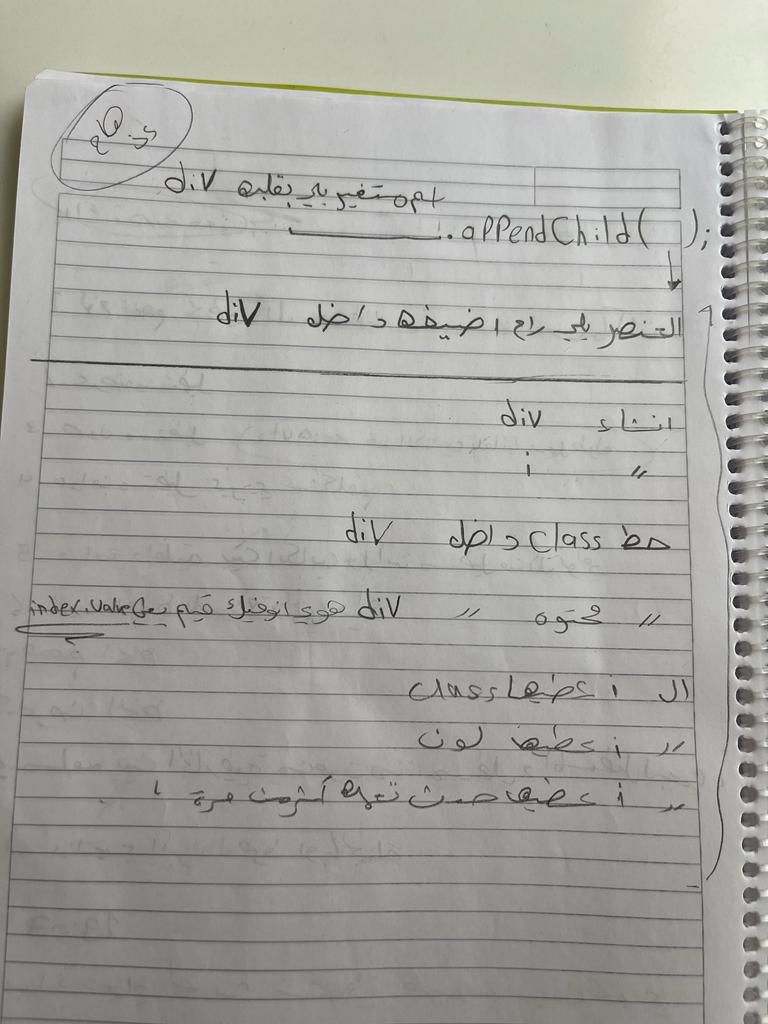 متغير يلي بقلبه div
.appendChild( );
العنصر يلي راح اضيفه داخل div
انشاء div
" i
حط class داخل div
" محتوه " div هوي انو فيك قيم index.value
ال i عطيها class
" i عطيها لون
" i عطيها حدث تعمله أكثر من مرة